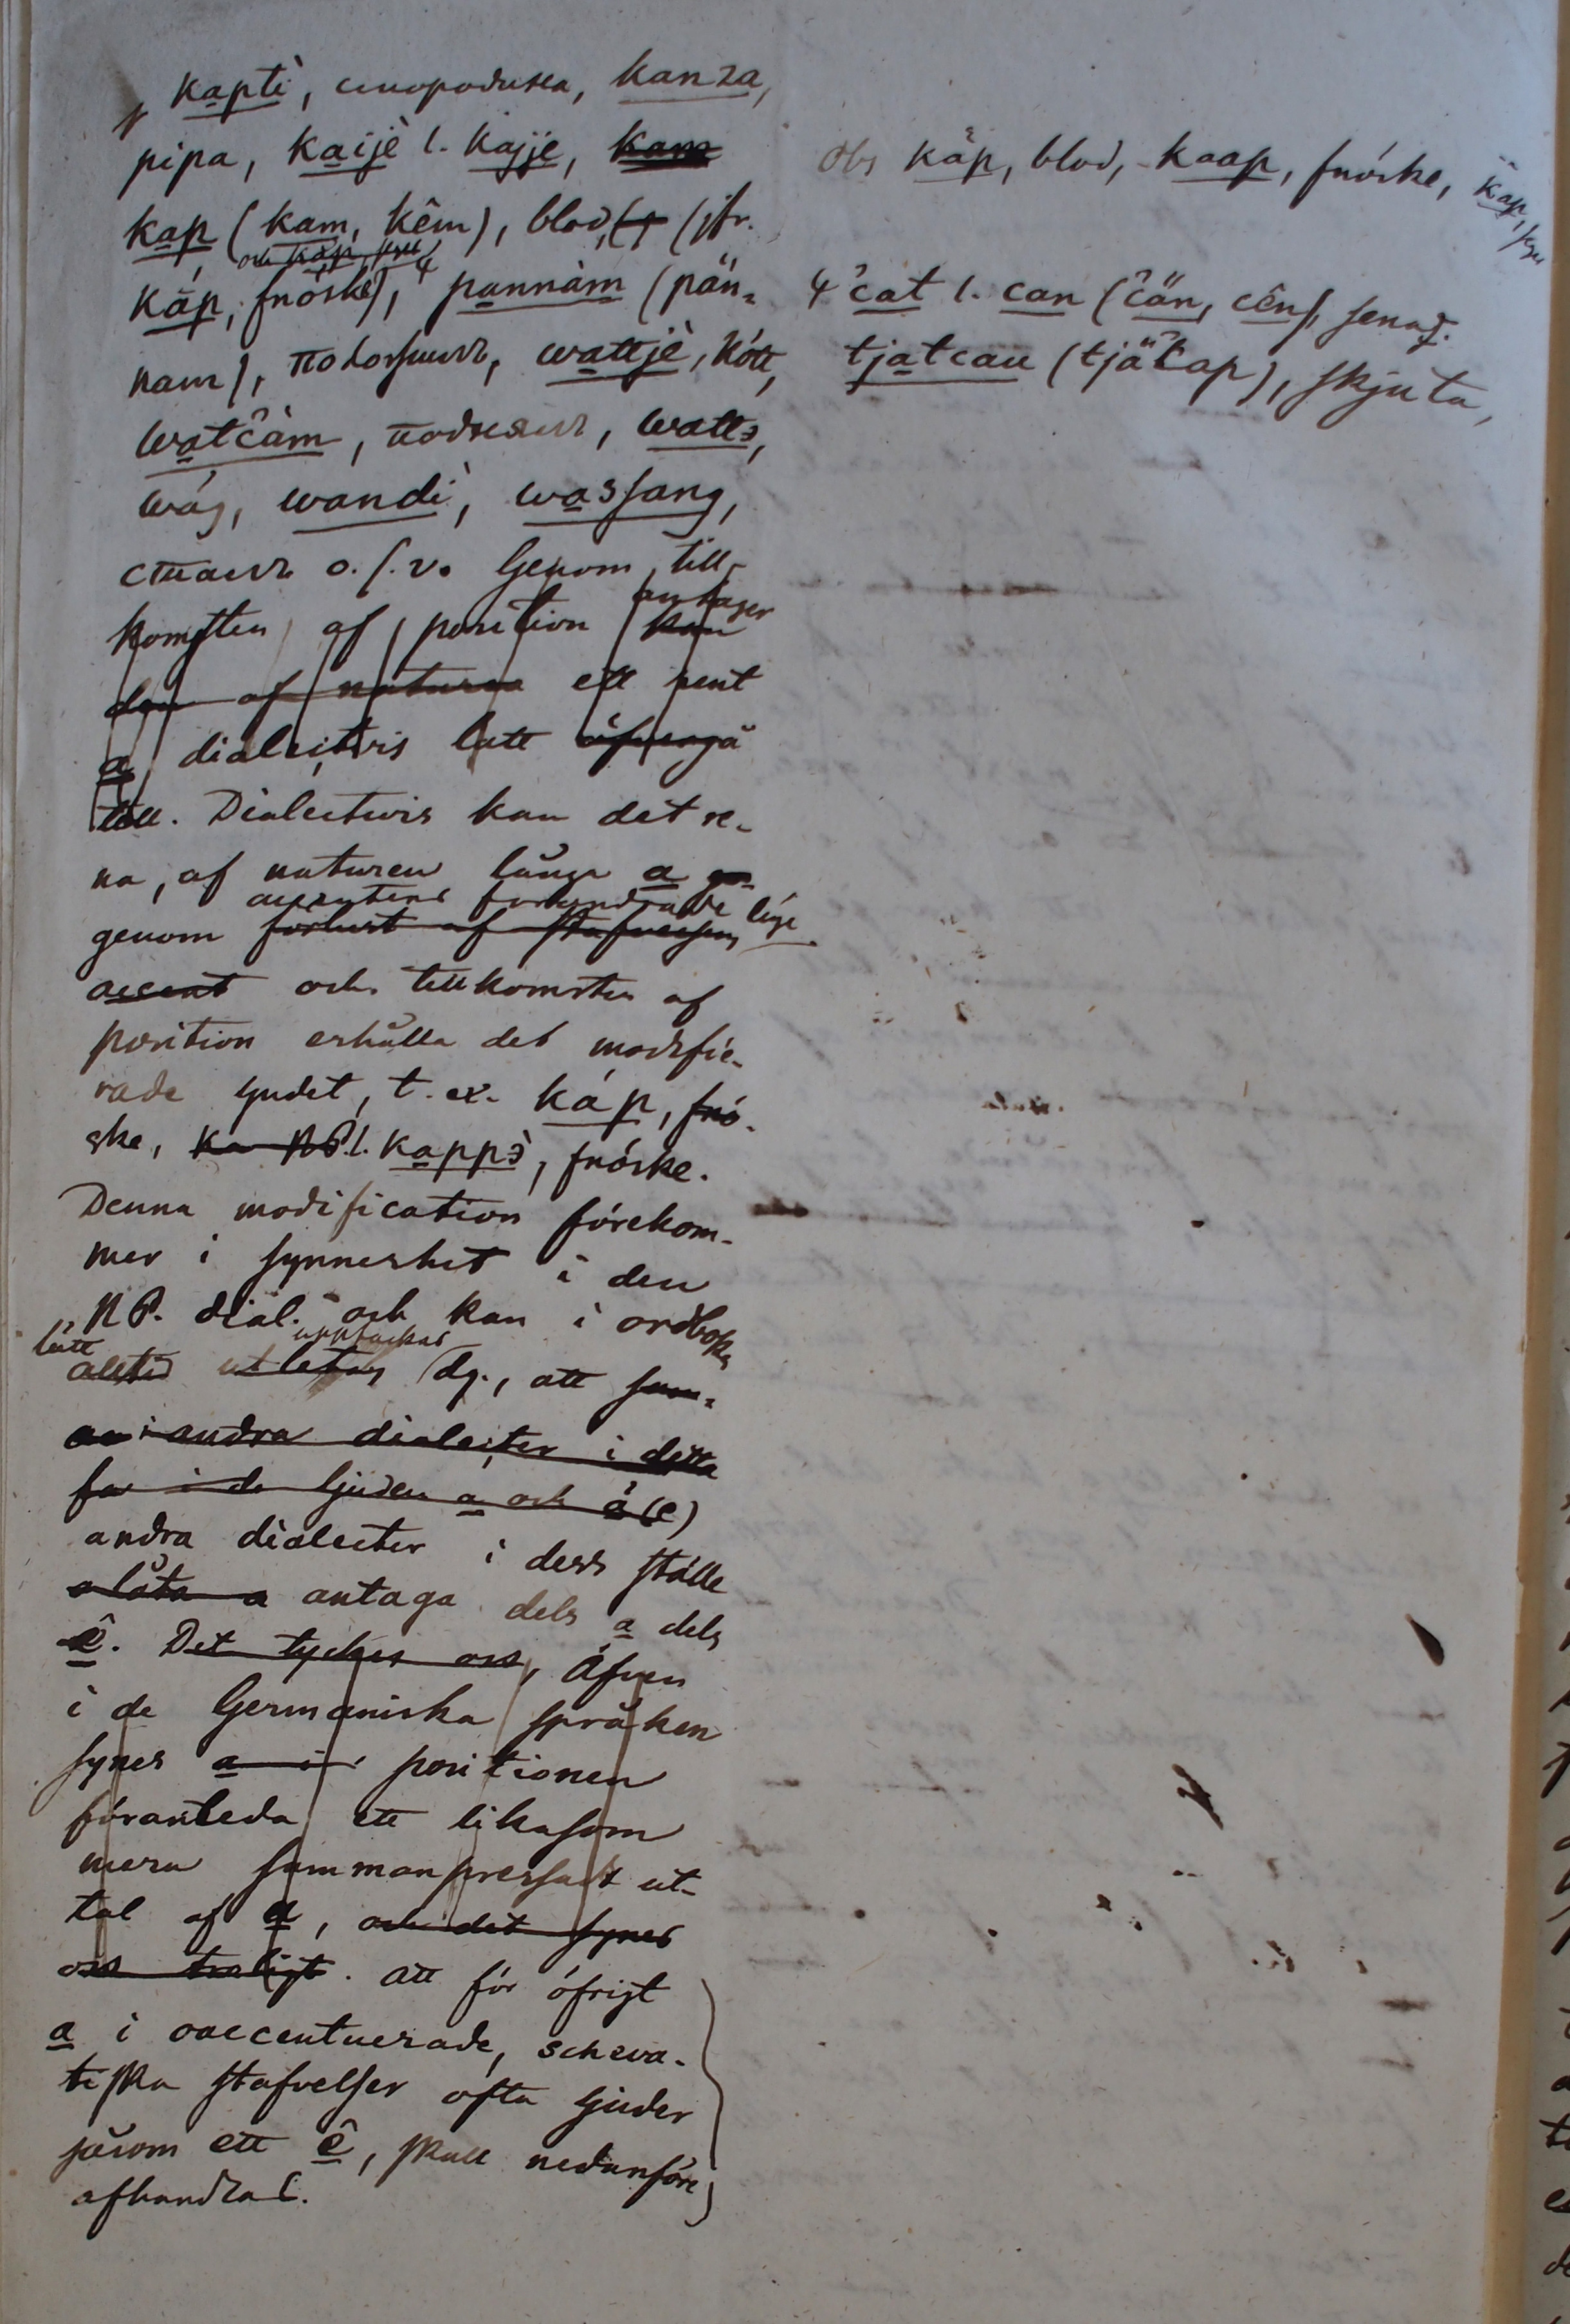 kapti, kanza,
pipa, kaijè l. kajje, kam
kap (kam, kêm), blod, (jfr.
och kap, 
käp, fnöske), pannàm (pän-
nam), wattjè, kött,
watčàm, wattə,
wåg, wandì, wassang,
o. s. v. Genom till-
antager
komsten af position kan
den af naturen ett rent
a dialectvis lätt öfvergå
till. Dialectvis kan det re-
na, af naturen långa a ge-
accentens förändrade läge
genom förlust af stafvelsens
accent och tillkomsten af
position erhålla det modifie-
rade ljudet, t. ex. káp, fnö-
ske, ka NP. l. kappə̀, fnöske.
Denna modification förekom-
mer i synnerhet i den
NP. dial. och kan i ordboken
lätt upptäckas
alltid utletas dg., att
andra dialecter i detta
i de ljuden a och ê (e)
andra dialecter i dess ställe
låta a antaga dels a dels
ê. Det tyckes oss, Äfven
i de Germaniska språken
synes a i positionen
föranleda ett likasom
mera sammanpressadt ut-
tal af a, och det synes
oss troligt. Att för öfrigt
a i oaccentuerade, schwa-
tiska stafvelser ofta ljuder
såsom ett ê, skall nedanföre
afhandlas.
Obs käp, blod, kaap, fnöske, kap,
čat l. can (čän, cên), senad.
tjatcau (tjäčap), skjuta,